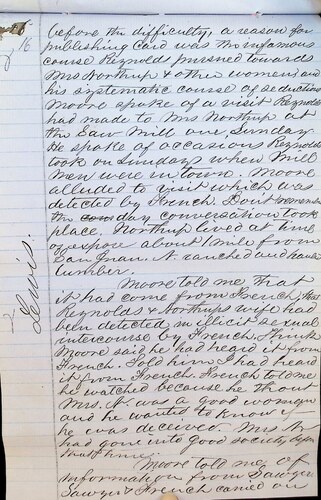 25
16
before the difficulty, a reason for
publishing Card was the infamous
course Reynolds pursued towards
Mrs Northup & other women and
his systematic course of seduction
Moore spoke of a visit Reynolds
had made to Mrs Northup at
the Saw Mill one Sunday
He spoke of occasions Reynolds
took on Sundays when Mill
Men were in town. Moore
alluded to visit which was
detected by French. Dont remember
the day conversation took
place. Northup lived at time
of expose about 1 mile from
San Juan. N ranched and hauled
lumber.
Lewis.
Moore told me that
it had come from French, that
Reynolds & Northups wife had
been detected in illicit sexual
intercourse by French. Think
Moore said he had heard it from
French. Told him I had heard
it from French. French told me
he watched because he thout
Mrs. N. was a good woman
and he wanted to know if
he was deceived. Mrs N
had gone into good society before
that time.
Moore told me of
information from Sawyer
Sawyer & French carried on